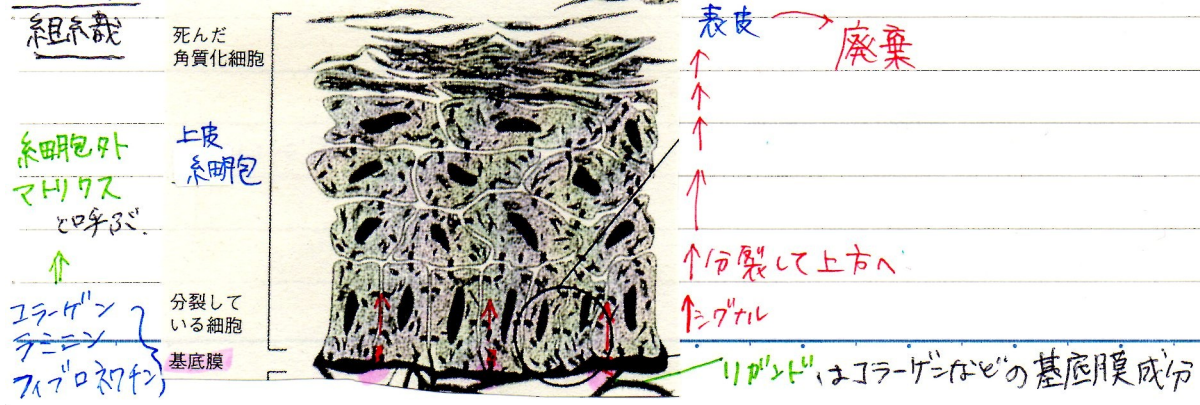 組織
細胞外
マトリクス
と呼ぶ.
コラーゲン
ラミニン
フィブロネクチン
死んだ
角質化細胞
上皮
細胞
分裂して
いる細胞
基底膜
表皮
廃棄
分裂して上方へ
シグナル
リガンドはコラーゲンなどの基底膜成分